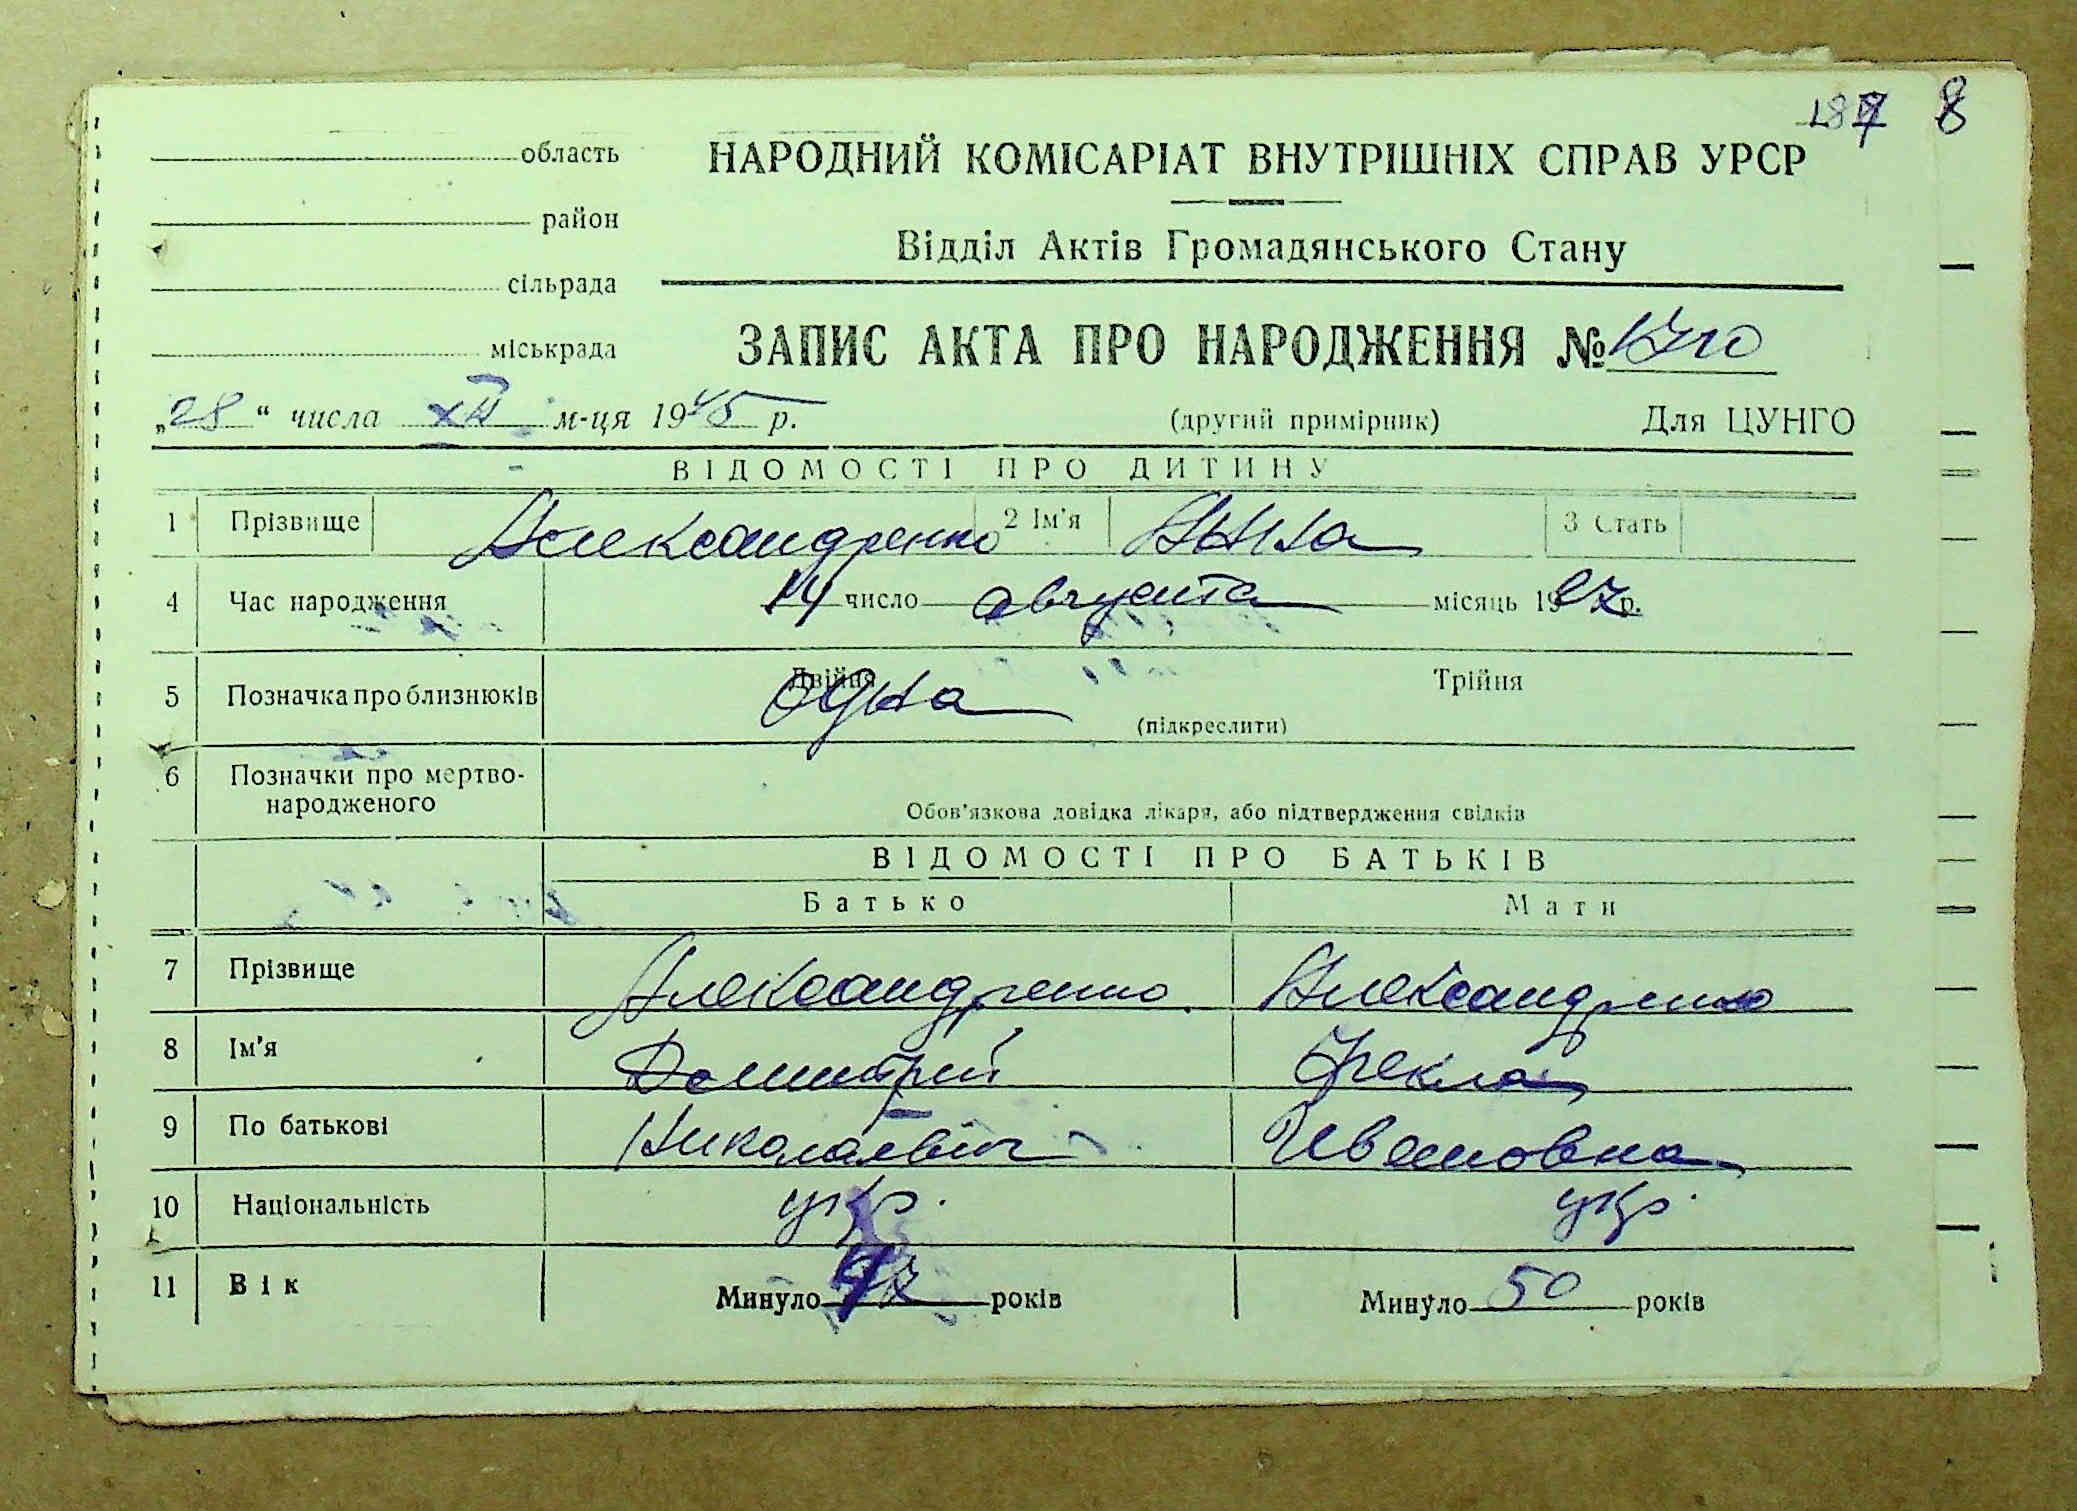 8
область
НАРОДНИЙ КОМІСАРІАТ ВНУТРІШНІХ СПРАВ УРСР
район
Відділ Актів Громадянського Стану
сільрада
міськрада
ЗАПИС АКТА ПРО НАРОДЖЕННЯ №
„28“ числа XII м-ця 1945 р. (другий примірник) Для ЦУНГО
ВІДОМОСТІ ПРО ДИТИНУ
1 Прізвище Александренко 2 Ім'я Анна 3 Стать
4 Час народження 14 число августа місяць 1927 р.
5 Позначка про близнюків Двійня Одна Трійня
(підкреслити)
6 Позначки про мертво-
народженого
Обов'язкова довідка лікаря, або підтвердження свідків
ВІДОМОСТІ ПРО БАТЬКІВ
Батько Мати
7 Прізвище Александренко Александренко
8 Ім'я Дмитрий Фекла
9 По батькові Николаевич Ивановна
10 Національність укр. укр.
11 Вік Минуло років Минуло 50 років